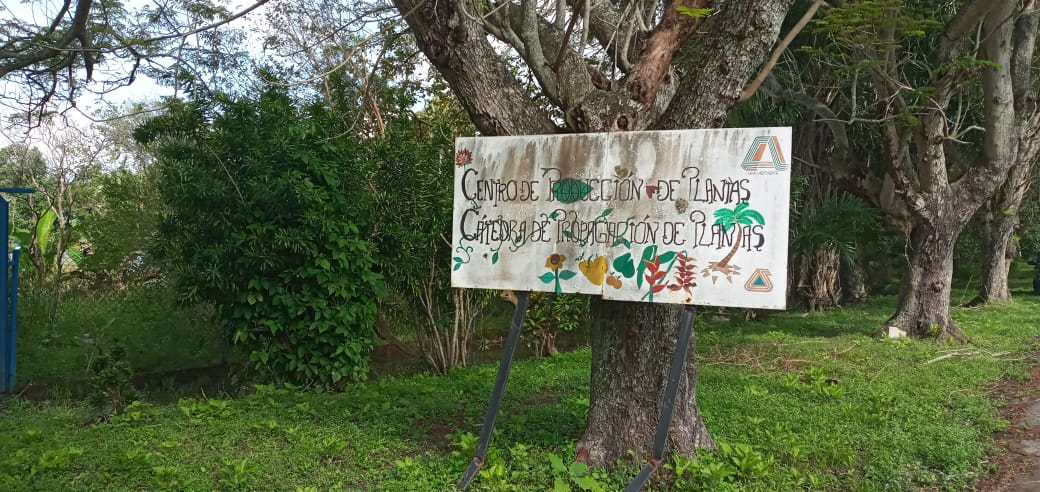 CENTRO DE PRODUCCIÓN DE PLANTAS
CÁTEDRA DE PROPAGACIÓN DE PLANTAS